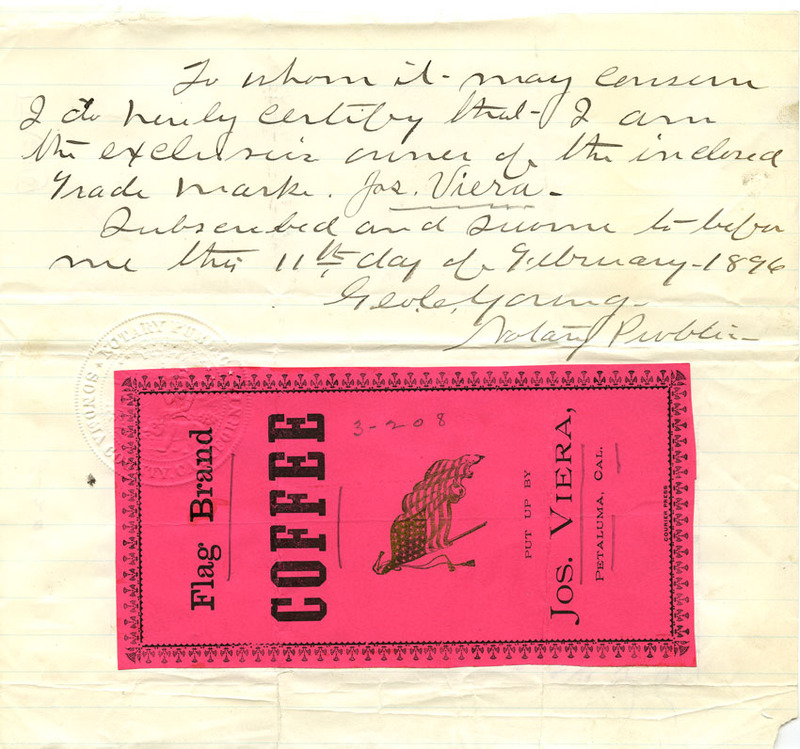 To whom it may consern
I do herely certify that I am
the exclusive owner of the inclosed
Trade Marke. Jos. Viera
Subscribed and sworne to befor
me this 11th day of February 1896
Geo. C. Young
Notary Publi
NOTARY PUBLIC
SONOMA COUNTY, CALIFORNIA
3-208
Flag Brand
COFFEE
PUT UP BY
JOS. VIERA,
PETALUMA, CAL.
COURIER PRESS